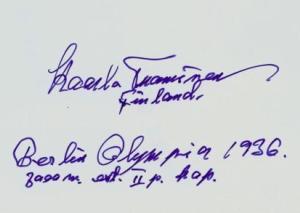 Kaarlo Tuominen
Finland.
Berlin Olympia 1936.
3000 m. est. II p. kap.